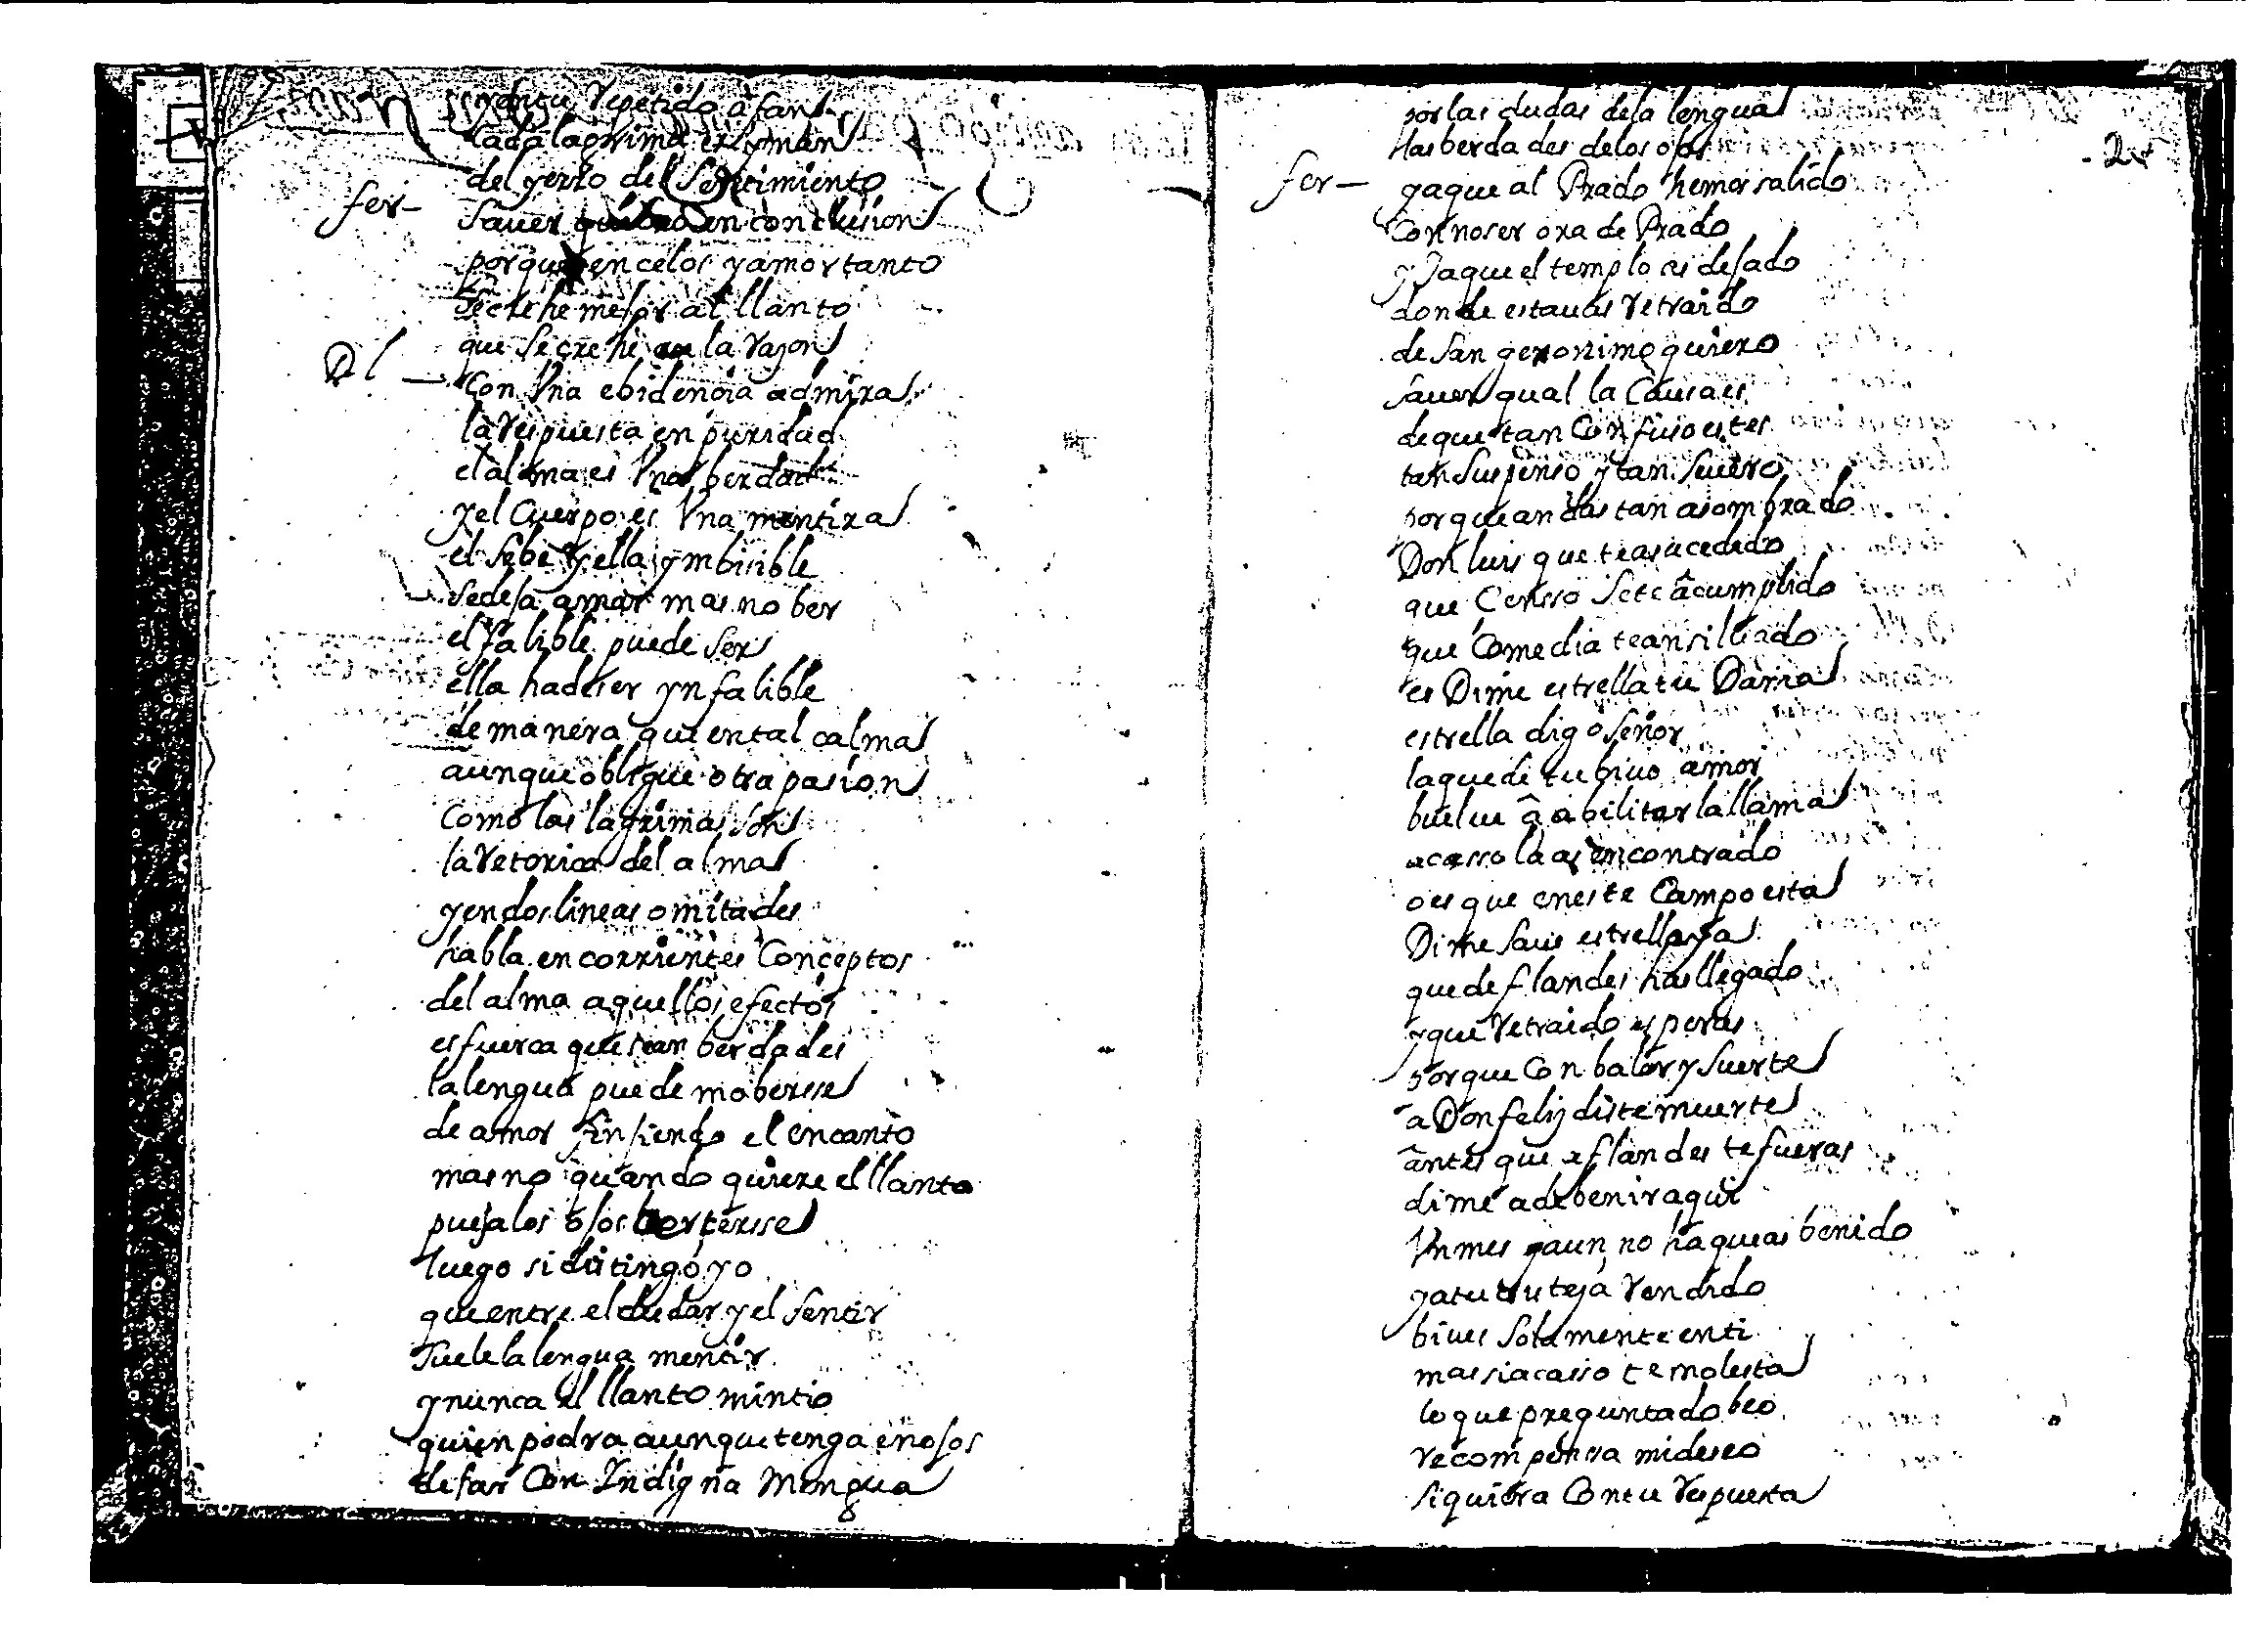 y en tu repetido afan
cada lagrima es yman
del yerro del sentimiento
fer— Sauer quiero en conclusion
porque en celos y amor tanto
se crehe mejor al llanto
que se crehe a la raçon
Dl— Con Vna ebidencia admira
la respuesta en puridad
el alma es Vna berdad
y el Cuerpo es Vna mentira
el sebe y ella ymbisible
se deja amar mas no ber
el falible puede ser
ella ha de ser ynfalible
de manera que en tal calma
aunque obligue otra pasion
Como las lagrimas son
la retorica del alma
y en dos lineas o mitades
habla en corrientes Conceptos
del alma aquellos efectos
es fuerca que sean berdades
la lengua puede moberse
de amor finjiendo el encanto
mas no quando quiere el llanto
puesa los ojos berterse
luego si distingo yo
que entre el dudar y el sentir
suele la lengua mentir
y nunca el llanto mintio
quien podra aunque tenga enojos
dejar Con Indigna Mengua
por las dudas de la lengua
las berdades de los ojos
2
fer— ya que al Prado hemos salido
Con no ser ora de Prado
y ya que el templo as dejado
donde estauas retraido
de san geronimo quiero
sauer qual la Causa es
de que tan Confuso estes
tan suspenso y tan seuero
por que andas tan asombrado
Don luis que te a sucedido
que Censso se te â cumplido
que Comedia te an silbado
es Dime estrella tu Dama
estrella digo señor
la que de tu biuo amor
buelue â abilitar la llama
acasso la as encontrado
o es que en este Campo esta
Dime saue estrella ya
que de flandes has llegado
y que retraido esperas
porque Con balor y suerte
a Don feliz diste muerte
antes que a flandes te fueras
dime a de benir aqui
Vn mes y aun no ha que as benido
ya tu tristeça rendido
biues solamente en ti
mas si acasso te molesta
lo que preguntado beo
recompensa mi deseo
siquiera Con tu respuesta